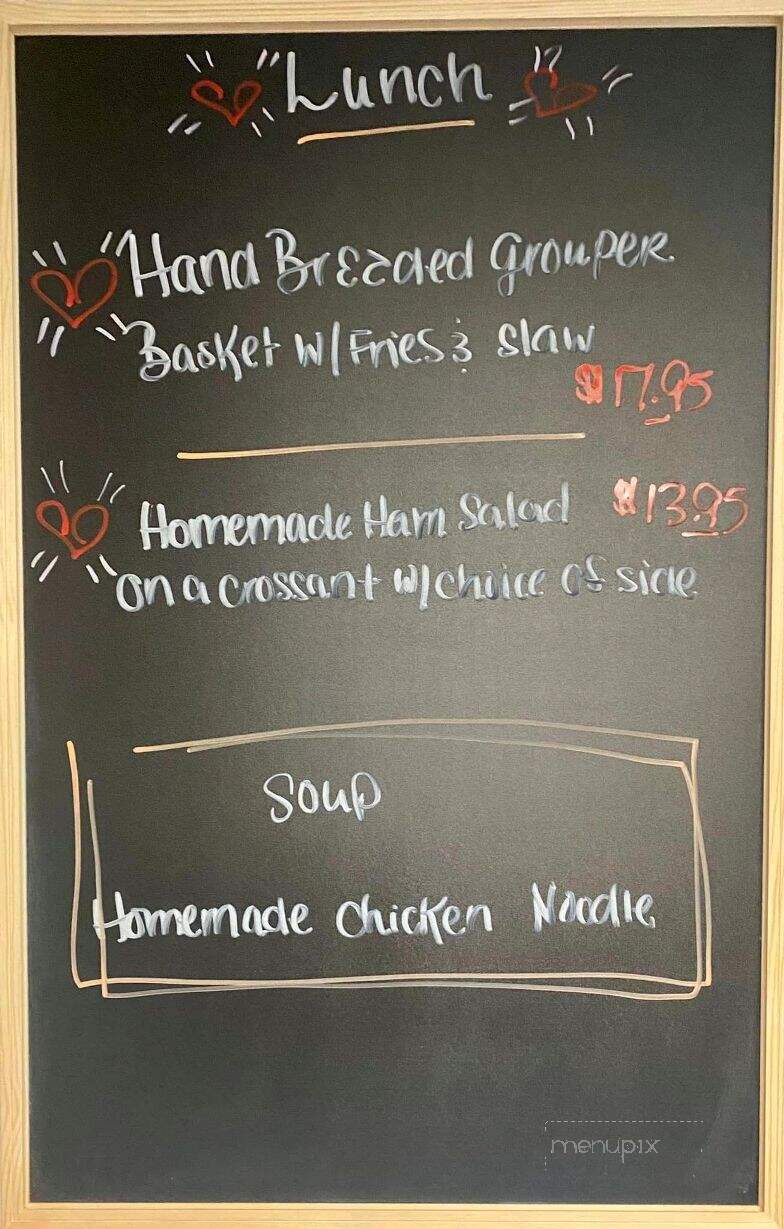 Lunch
Hand Breaded Grouper
Basket w/Fries & slaw
$17.95
Homemade Ham Salad $13.95
on a crossant w/choice of side
Soup
Homemade chicken Noodle
menupix